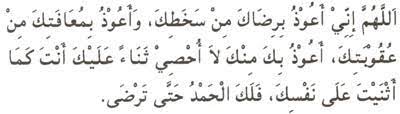 اَللَّهُمَّ إِنِّيْ أَعُوْذُ بِرِضَاكَ مِنْ سَخَطِكَ، وَأَعُوْذُ بِمُعَافَتِكَ مِنْ
عُقُوْبَتِكَ، أَعُوْذُ بِكَ مِنْكَ لاَ أُحْصِيْ ثَنَاءً عَلَيْكَ أَنْتَ كَمَا
أَثْنَيْتَ عَلَى نَفْسِكَ، فَلَكَ الْحَمْدُ حَتَّى تَرْضَى.